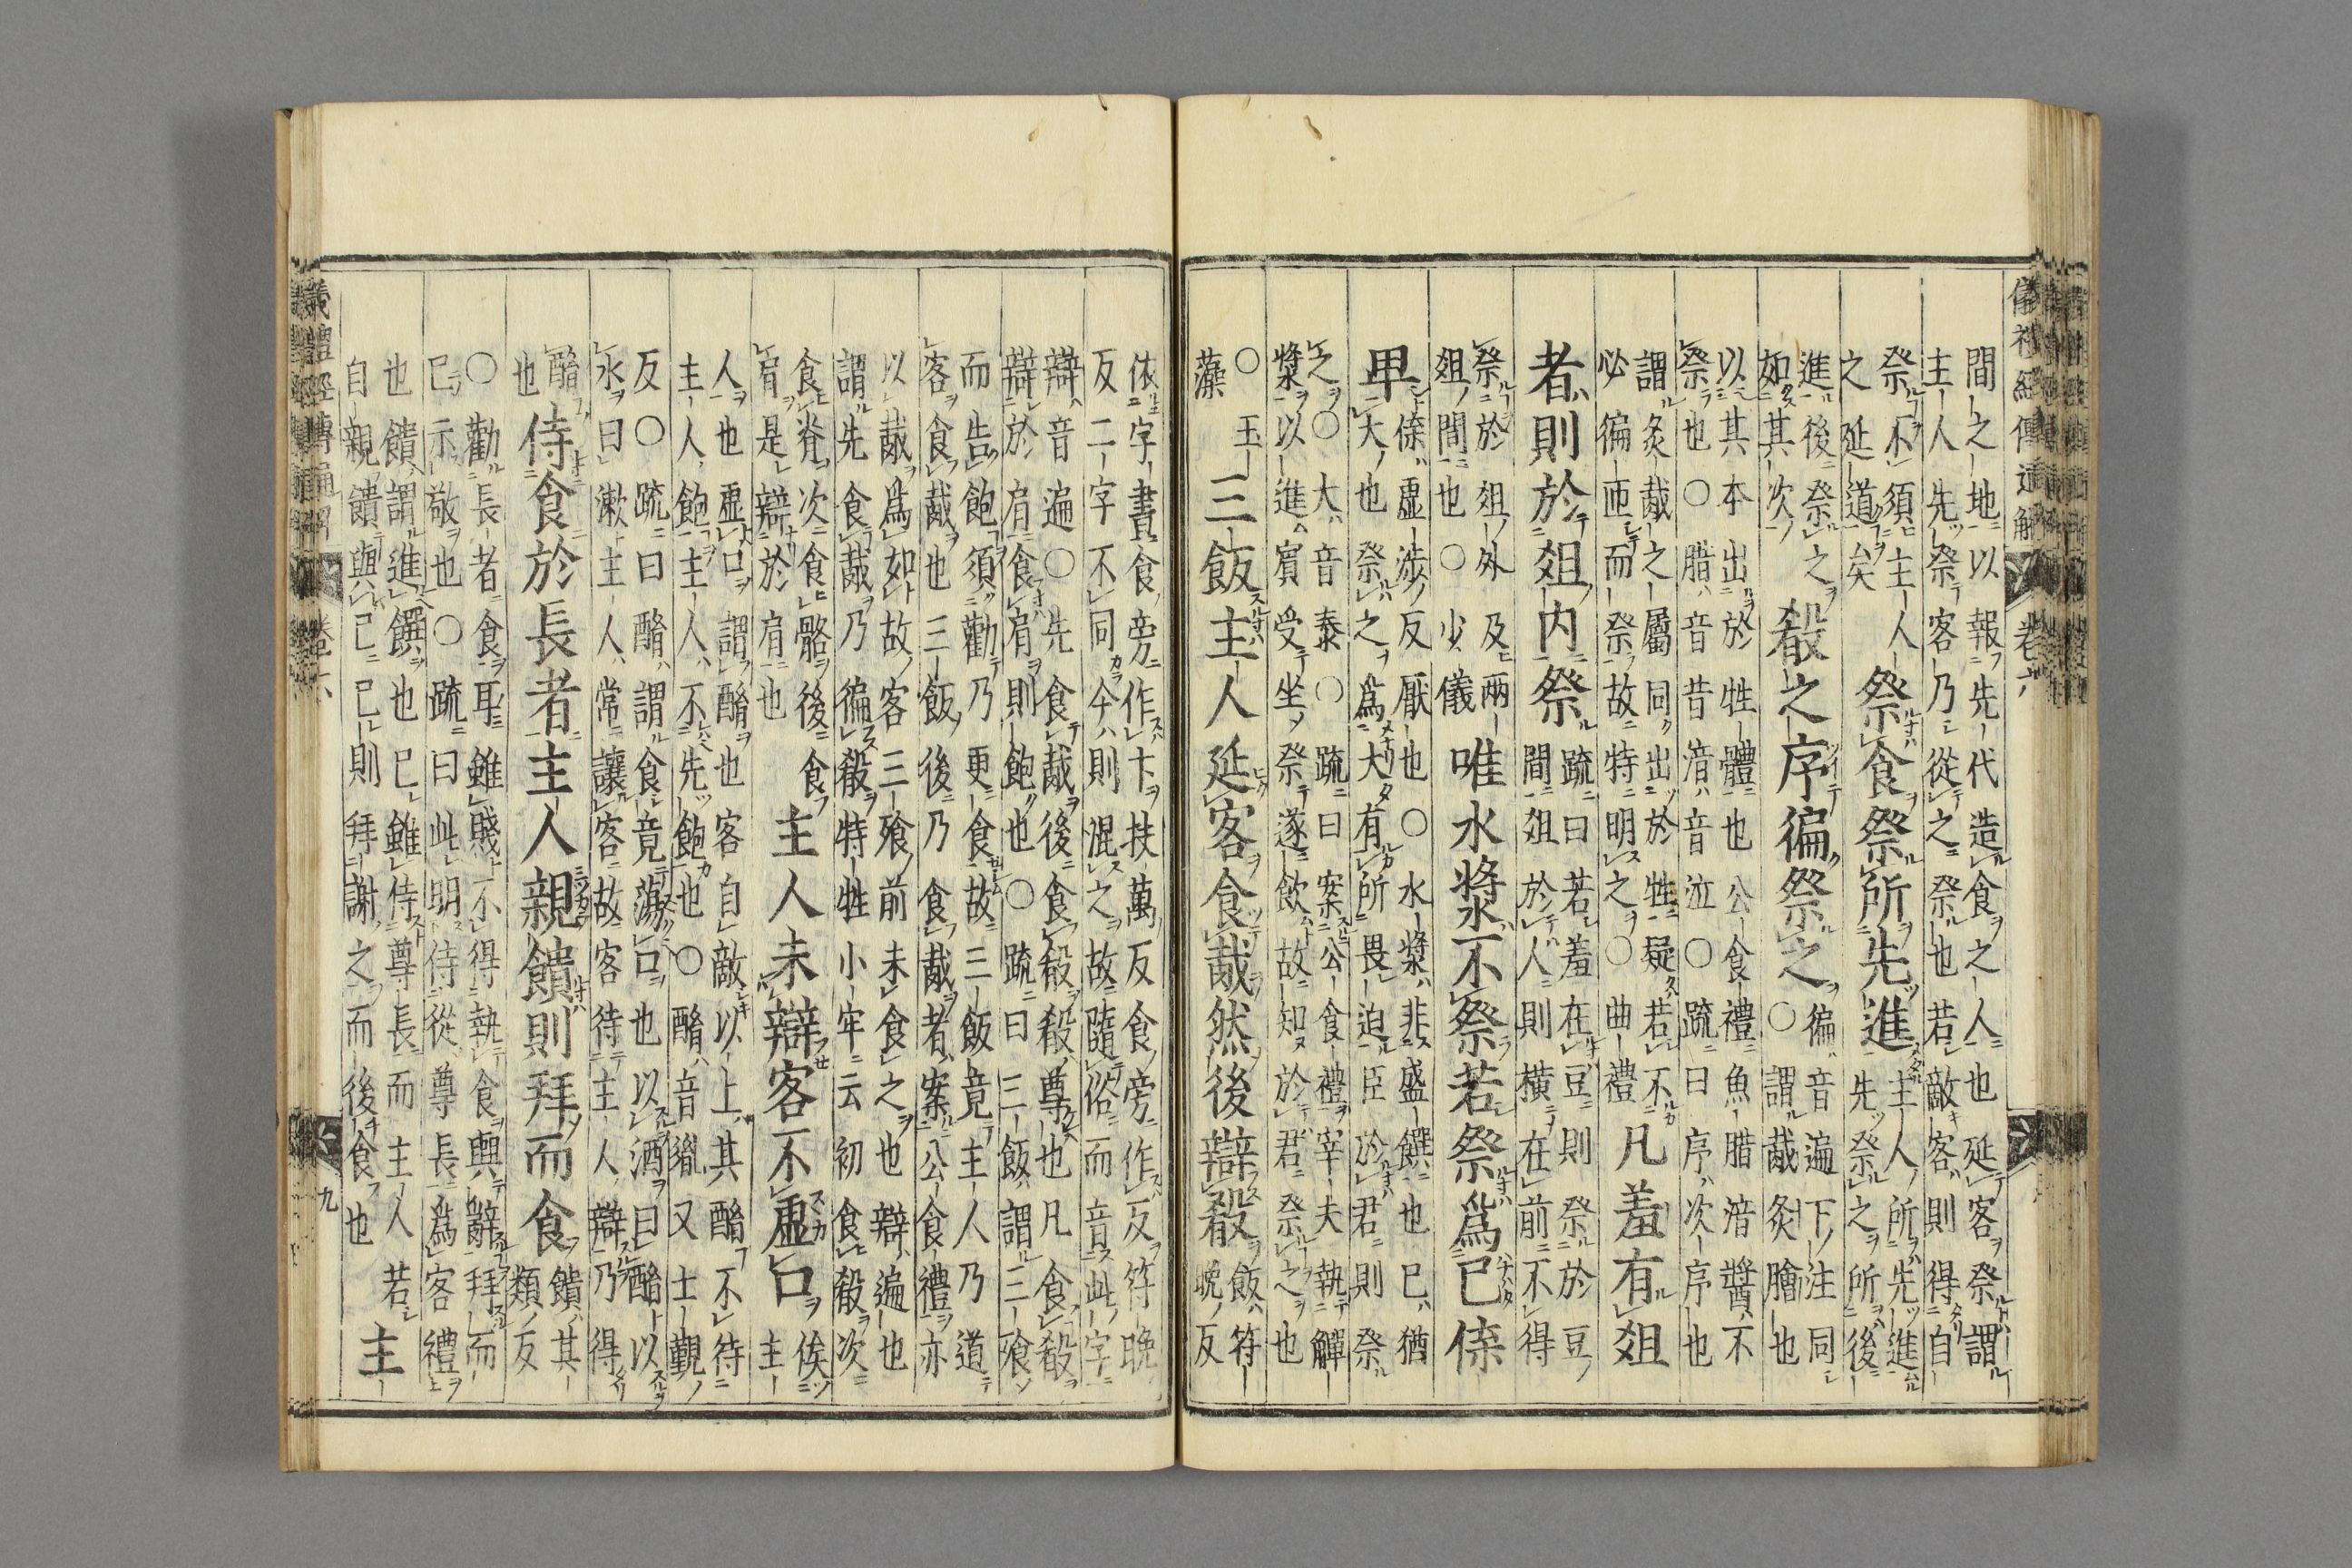 儀礼經傳通解 卷六
間之地以報先代造食之人也延客祭謂
主人先祭客乃從之祭也若敵客則得自
祭不須主人
之延道矣
祭食祭所先進
主人所先進
先祭之所後
進後祭之
如其次
殽之序徧祭之
徧音遍下注同
○謂胾炙膾也
以其本出於牲體也公食禮魚腊湆醬不
祭也○腊音昔湆音泣○疏曰序次序也
謂炙胾之屬同出於牲疑若不
必徧匝而祭故特明之○曲禮
凡羞有俎
者則於俎内祭
疏曰若羞在豆則祭於豆
間俎於人則横在前不得
祭於俎外及兩
俎間也○少儀
唯水漿不祭若祭爲已偞
卑
偞虚涉反厭也○水漿非盛饌也已猶
大也祭之爲大有所畏迫臣於君則祭
之○大音泰○疏曰案公食禮宰夫執觶
漿以進賓受坐祭遂飲故知於君祭之也
○玉
藻
三飯主人延客食胾然後辯殽
飯符
晩反
依字書食旁作卞扶萬反食旁作反符晩
反二字不同今則混之故隨俗而音此字
辯音遍○先食胾後食殽殽尊也凡食殽
辯於肩食肩則飽也○疏曰三飯謂三飱
而告飽須勸乃更食故三飯竟主人乃道
客食胾也三飯後乃食胾者案公食禮亦
以胾爲如故客三飱前未食之也辯遍也
謂先食胾乃徧殽特牲小牢云初食殽次
食脊次食骼後食
肩是辯於肩也
主人未辯客不虚口
俟
主
人也虚口謂酳也客自敵以上其酳不待
主人飽主人不先飽也○酳音胤又士覲
反○疏曰酳謂食竟蕩口也以酒曰酳以
水曰漱主人常讓客故客待主人辯乃得
酳
也
侍食於長者主人親饋則拜而食
饋其
類反
○勸長者食耳雖賤不得執食興辭拜而
已示敬也○疏曰此明侍從尊長爲客禮
也饋謂進饌也已雖侍尊長而主人若
自親饋與已已則拜謝之而後食也
主
儀禮經傳通解 卷六 九